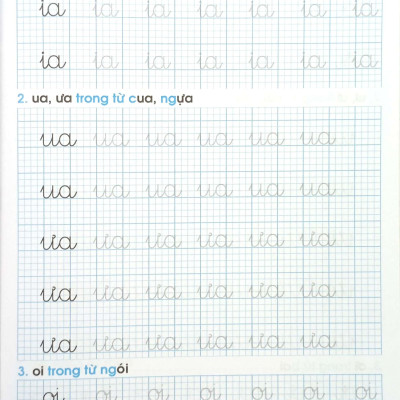 ia ia ia ia ia ia ia
ia ia ia ia ia ia ia
2. ua, ưa trong từ cua, ngựa
ua ua ua ua ua ua
ua ua ua ua ua ua
ưa ưa ưa ưa ưa ưa
ưa ưa ưa ưa ưa ưa
ưa ưa ưa ưa ưa ưa
3. oi trong từ ngói
oi oi oi oi oi oi oi